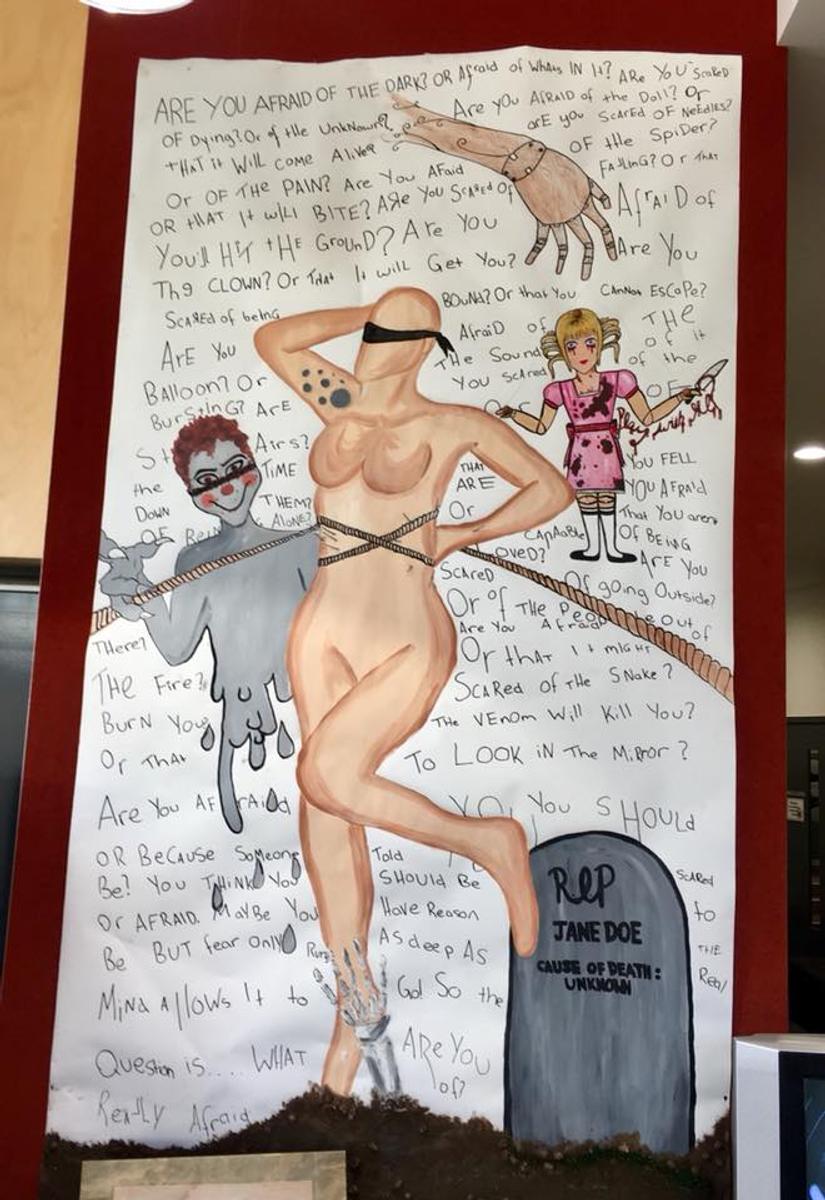 ARE YOU AFRAID OF THE DARK? OR Afraid of Whats IN It? ARe YoU Scared
OF Dying? Or of the Unknown? Are you AfRAID of the Doll? Or
tHAT it Will come Alive? orE you Scared OF Needles?
Or OF THE PAIN? Are You AFaid OF tHe SpiDer?
OR tHAT It wiLl BITE? ARe You Scared Of FAlliNG? Or THAT
You'll HiT tHE GrounD? Are You AfrAiD of
Th9 CLOWN? Or THAT It will Get You? Are You
ScaRed of beinG BOUND? Or that You CANNot EScaPe?
ArE You AfraiD of THE
Balloon? Or The Sound of it
BurStinG? ArE You Scared of the
OF
Play with Me
St Airs? YOU FELL
the TIME THAT ARE YOU AfrAiD
DOWN THEM? Or That You aren't
OF Bei Alone? CApAaBle OF BEING
Loved? ArE You
Scared Of going Outside?
Or of THe Peop le out of
THere? Are You Afraid
THE Fire? Or tHAT It migHT
Burn You? ScaRed Of tHe SNake?
Or THAT THe VEnom Will Kill You?
Are You AFrAiD To LOOK iN THe MiRror?
YOU You SHOUld
OR BeCause SoMeone Told ScaRed
Be? You THink You SHOULD Be to
Or AFRAID. MayBe You Have Reason THE
Be BUT fear only Runs AS deep AS Real
Mind Allows It to Go! So the
Question is.... WHAT ARe You
ReALLy Afraid of?
RIP
JANE DOE
CAUSE OF DEATH:
UNKNOWN